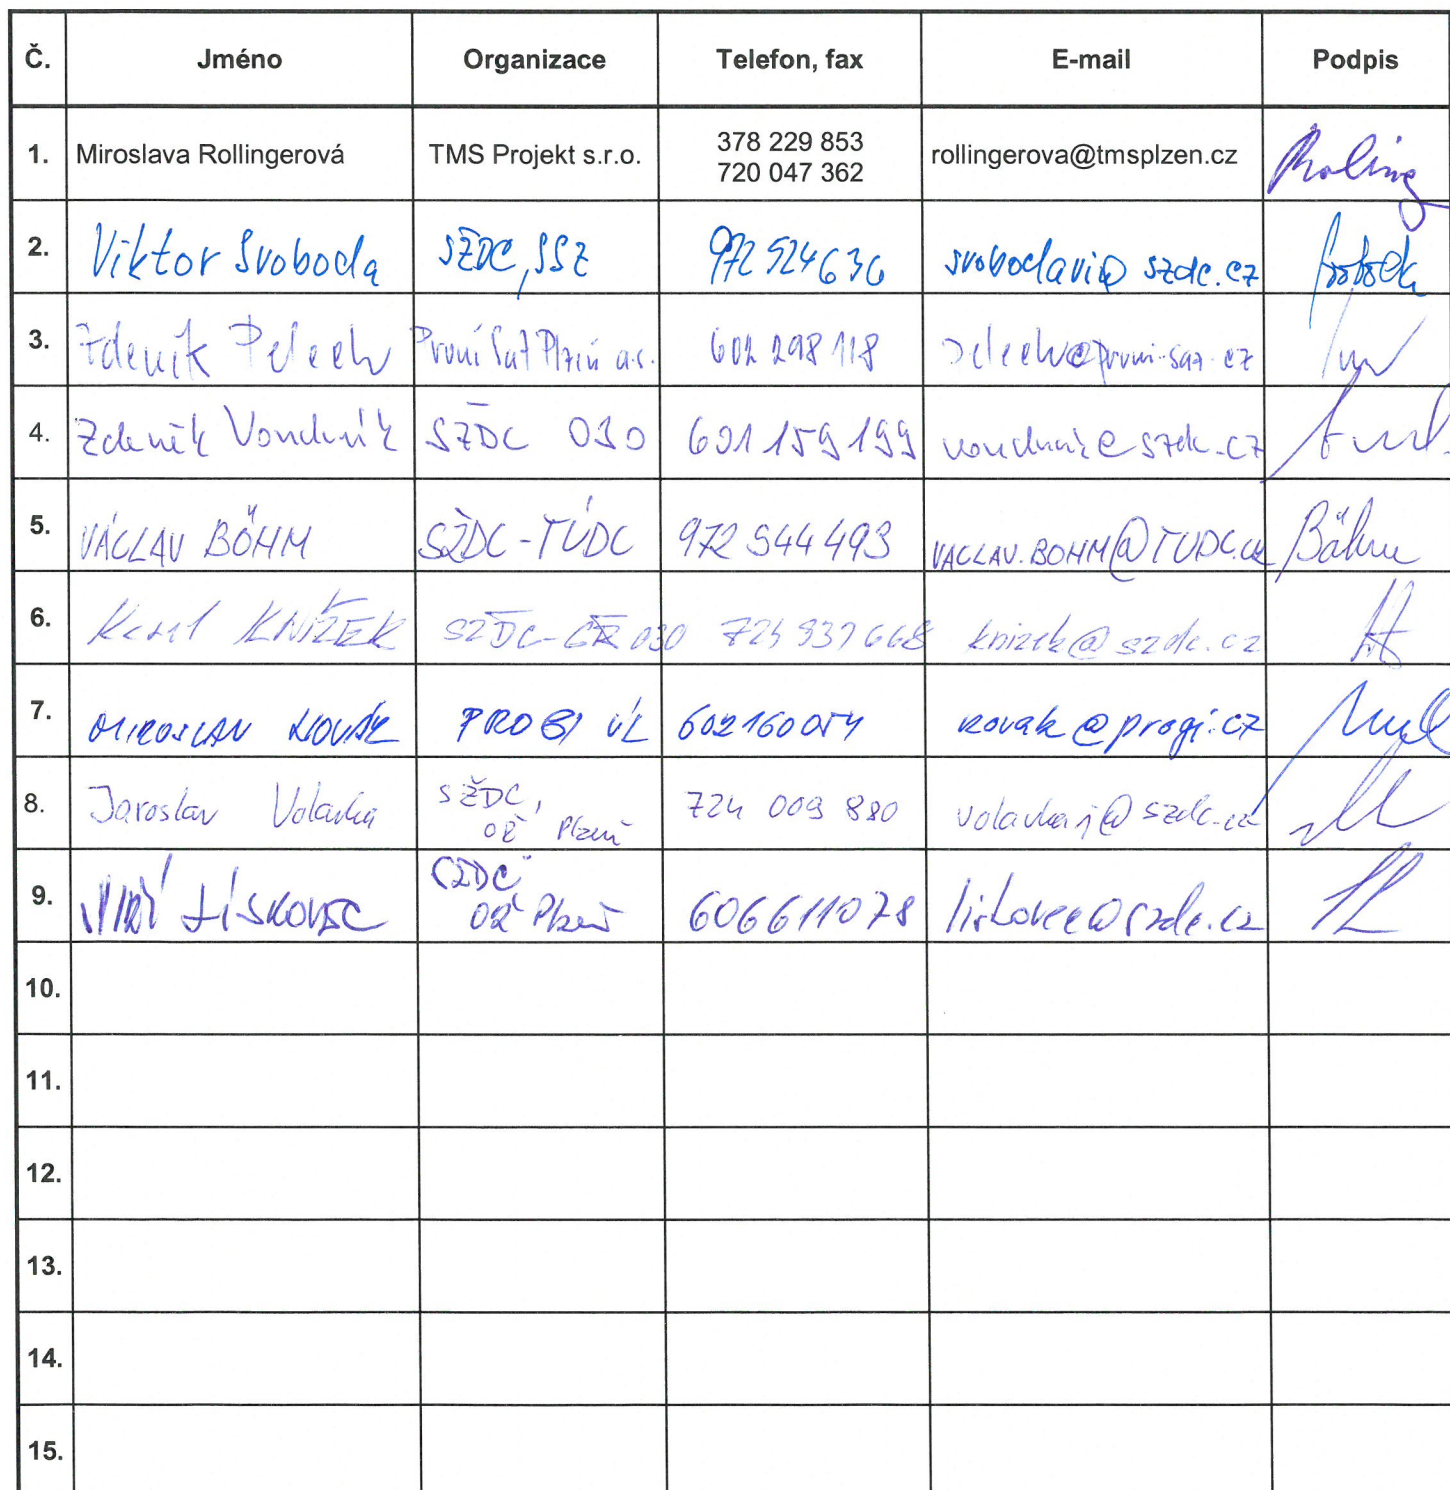 Č. Jméno Organizace Telefon, fax E-mail Podpis
1. Miroslava Rollingerová TMS Projekt s.r.o. 378 229 853 720 047 362 rollingerova@tmsplzen.cz
2. Viktor Svoboda SŽDC, SSZ 972 524 636 svobodavi@szdc.cz
3. Zdeněk Pelech První Saž Plzeň a.s. 602 298 118 pelech@prvni-saz.cz
4. Zdeněk SŽDC 030 601 159 199
5. VÁCLAV BÖHM SŽDC-TÚDC 972 544 493 VACLAV.BOHM@TUDC.cz Böhm
6. Karel KNÍŽEK SŽDC- 030 knizek@szdc.cz
7. MIROSLAV NOVÁK ÚL 602160054 novak@progi.cz
8. Jaroslav Volavka SŽDC, OŘ Plzeň 724 009 880 volavkaj@szdc.cz
9. JIŘÍ LÍSKOVEC SŽDC OŘ Plzeň 606611078 liskovec@szdc.cz
10.
11.
12.
13.
14.
15.